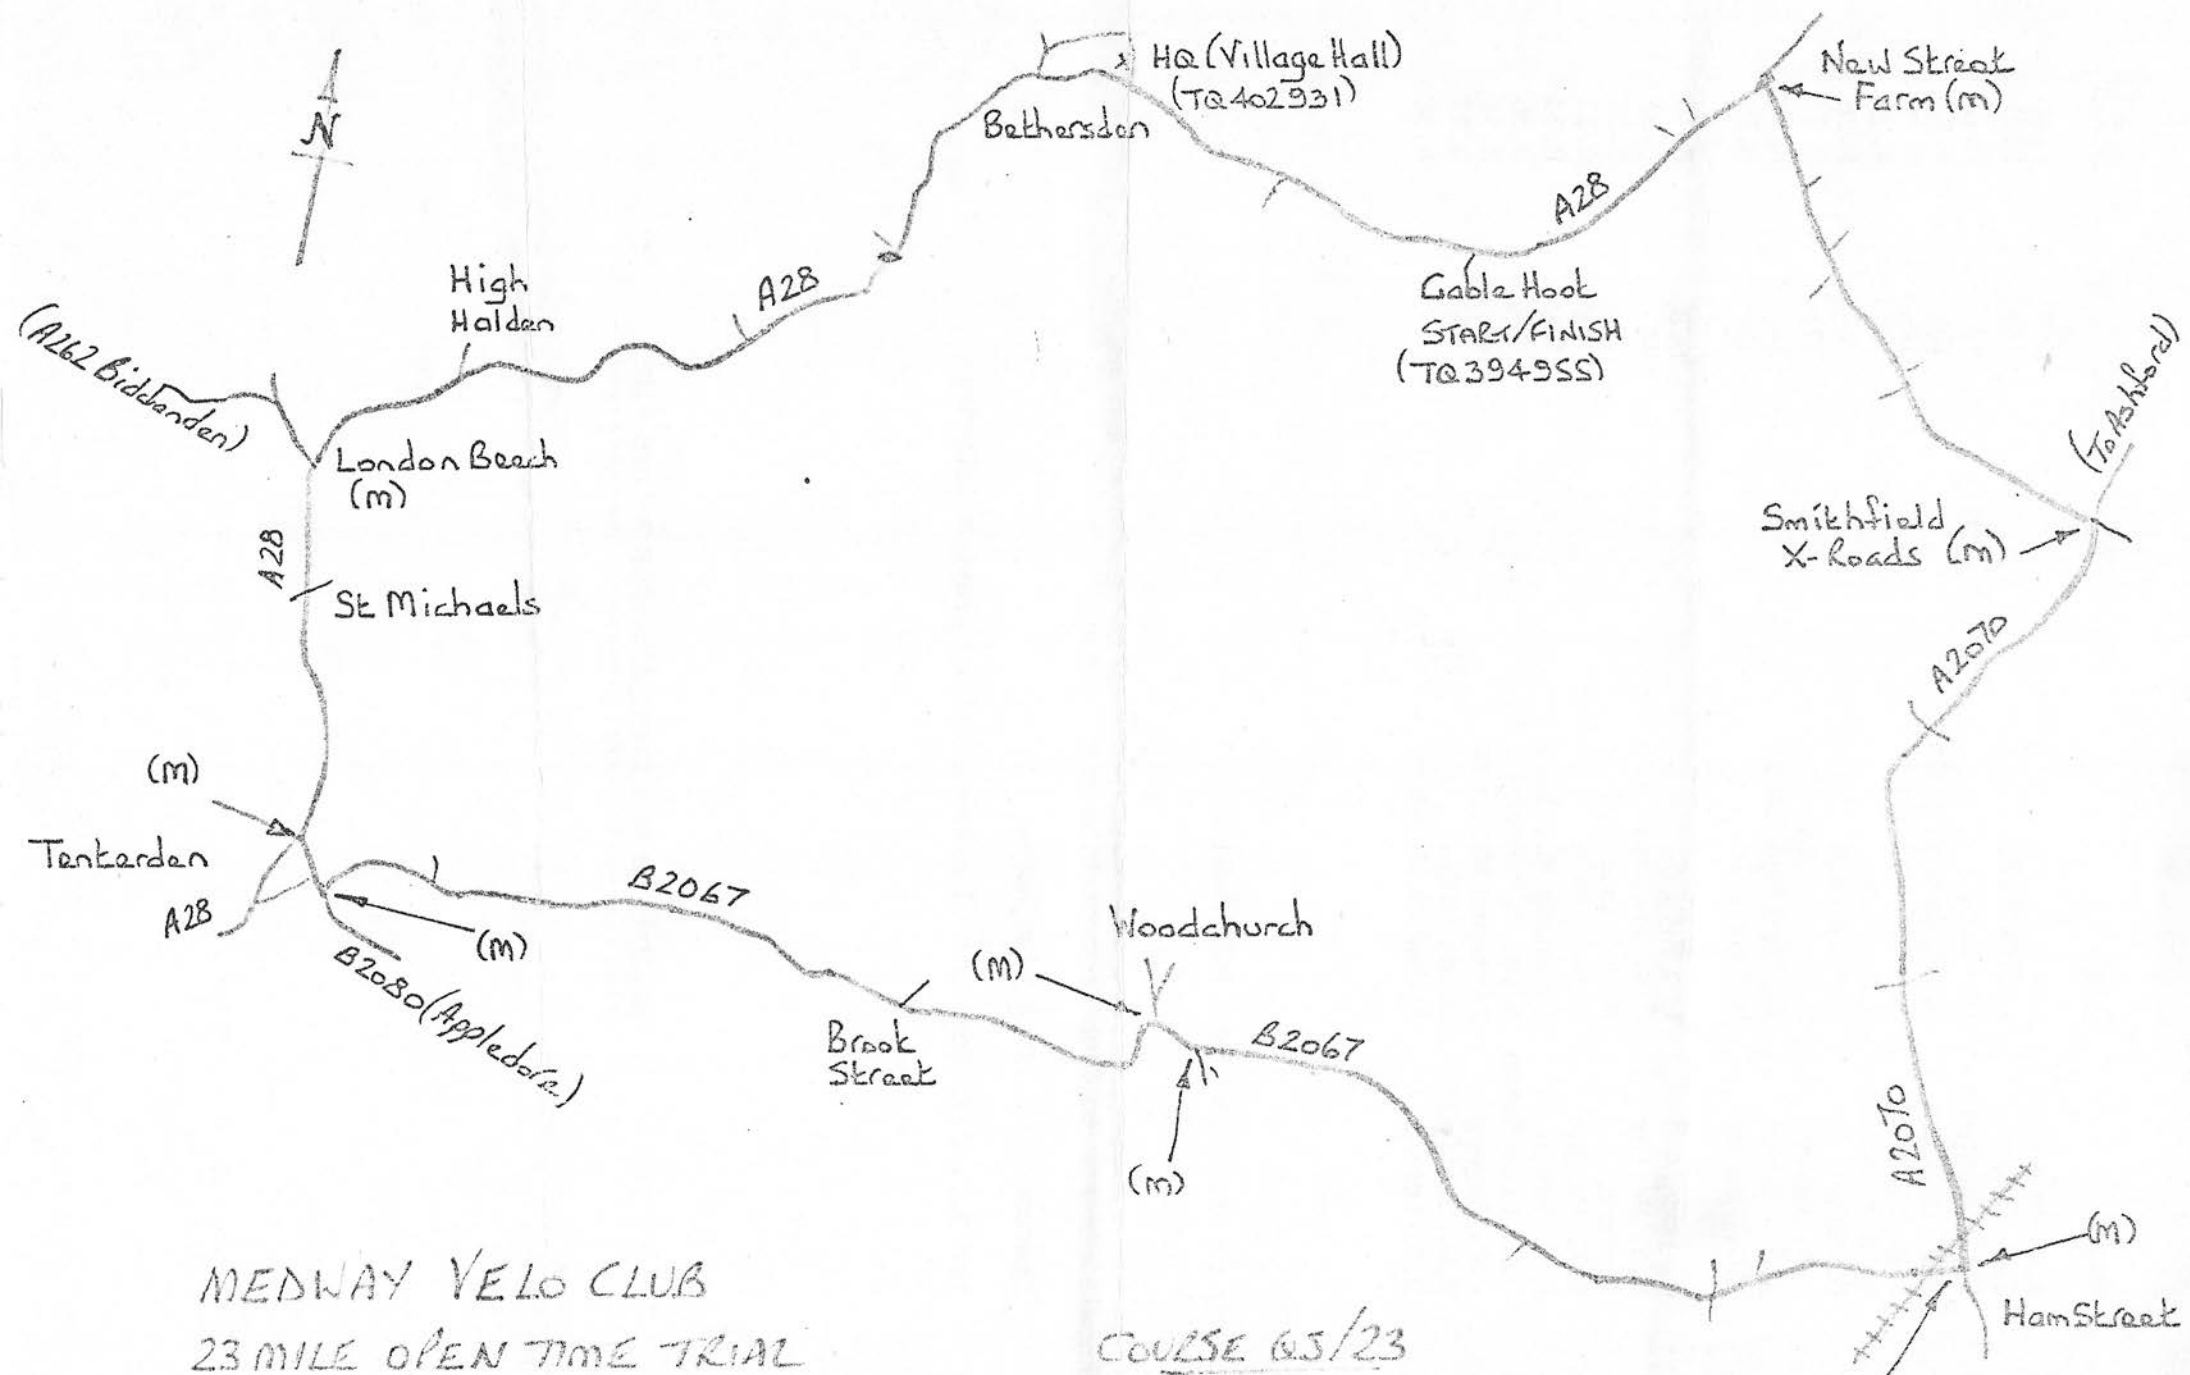 HQ (Village Hall)
(TQ402931)
Bethersden
New Street
Farm (m)
N
A28
High
Halden
A28
Gable Hook
START/FINISH
(TQ394955)
(A262 Biddenden)
London Beech
(m)
(To Ashford)
Smithfield
X-Roads (m)
A28
St Michaels
A2070
(m)
Tenterden
A28
B2067
(m)
B2080 (Appledore)
Woodchurch
(m)
Brook
Street
B2067
(m)
A2070
(m)
HamStreet
MEDWAY VELO CLUB
23 MILE OPEN TIME TRIAL
COURSE QS/23